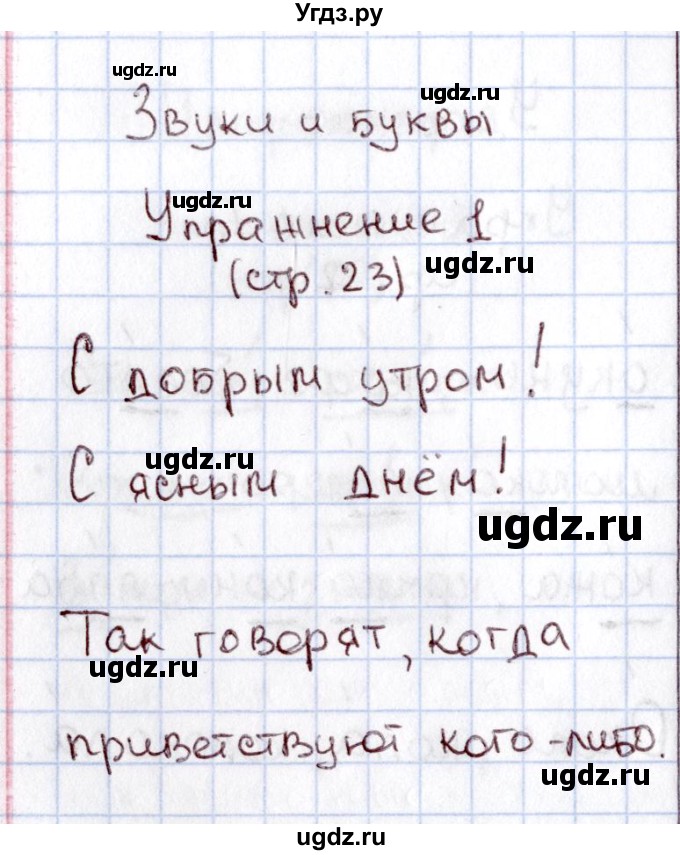 Угдз.ру
ugdz.ru
ugdz.ru
Звуки и буквы
ugdz.ru
Упражнение 1
ugdz.ru
(стр. 23)
С добрым утром!
ugdz.ru
С ясным днём!
ugdz.ru
Так говорят, когда
ugdz.ru
приветствуют кого-либо.
ugdz.ru
ugdz.ru